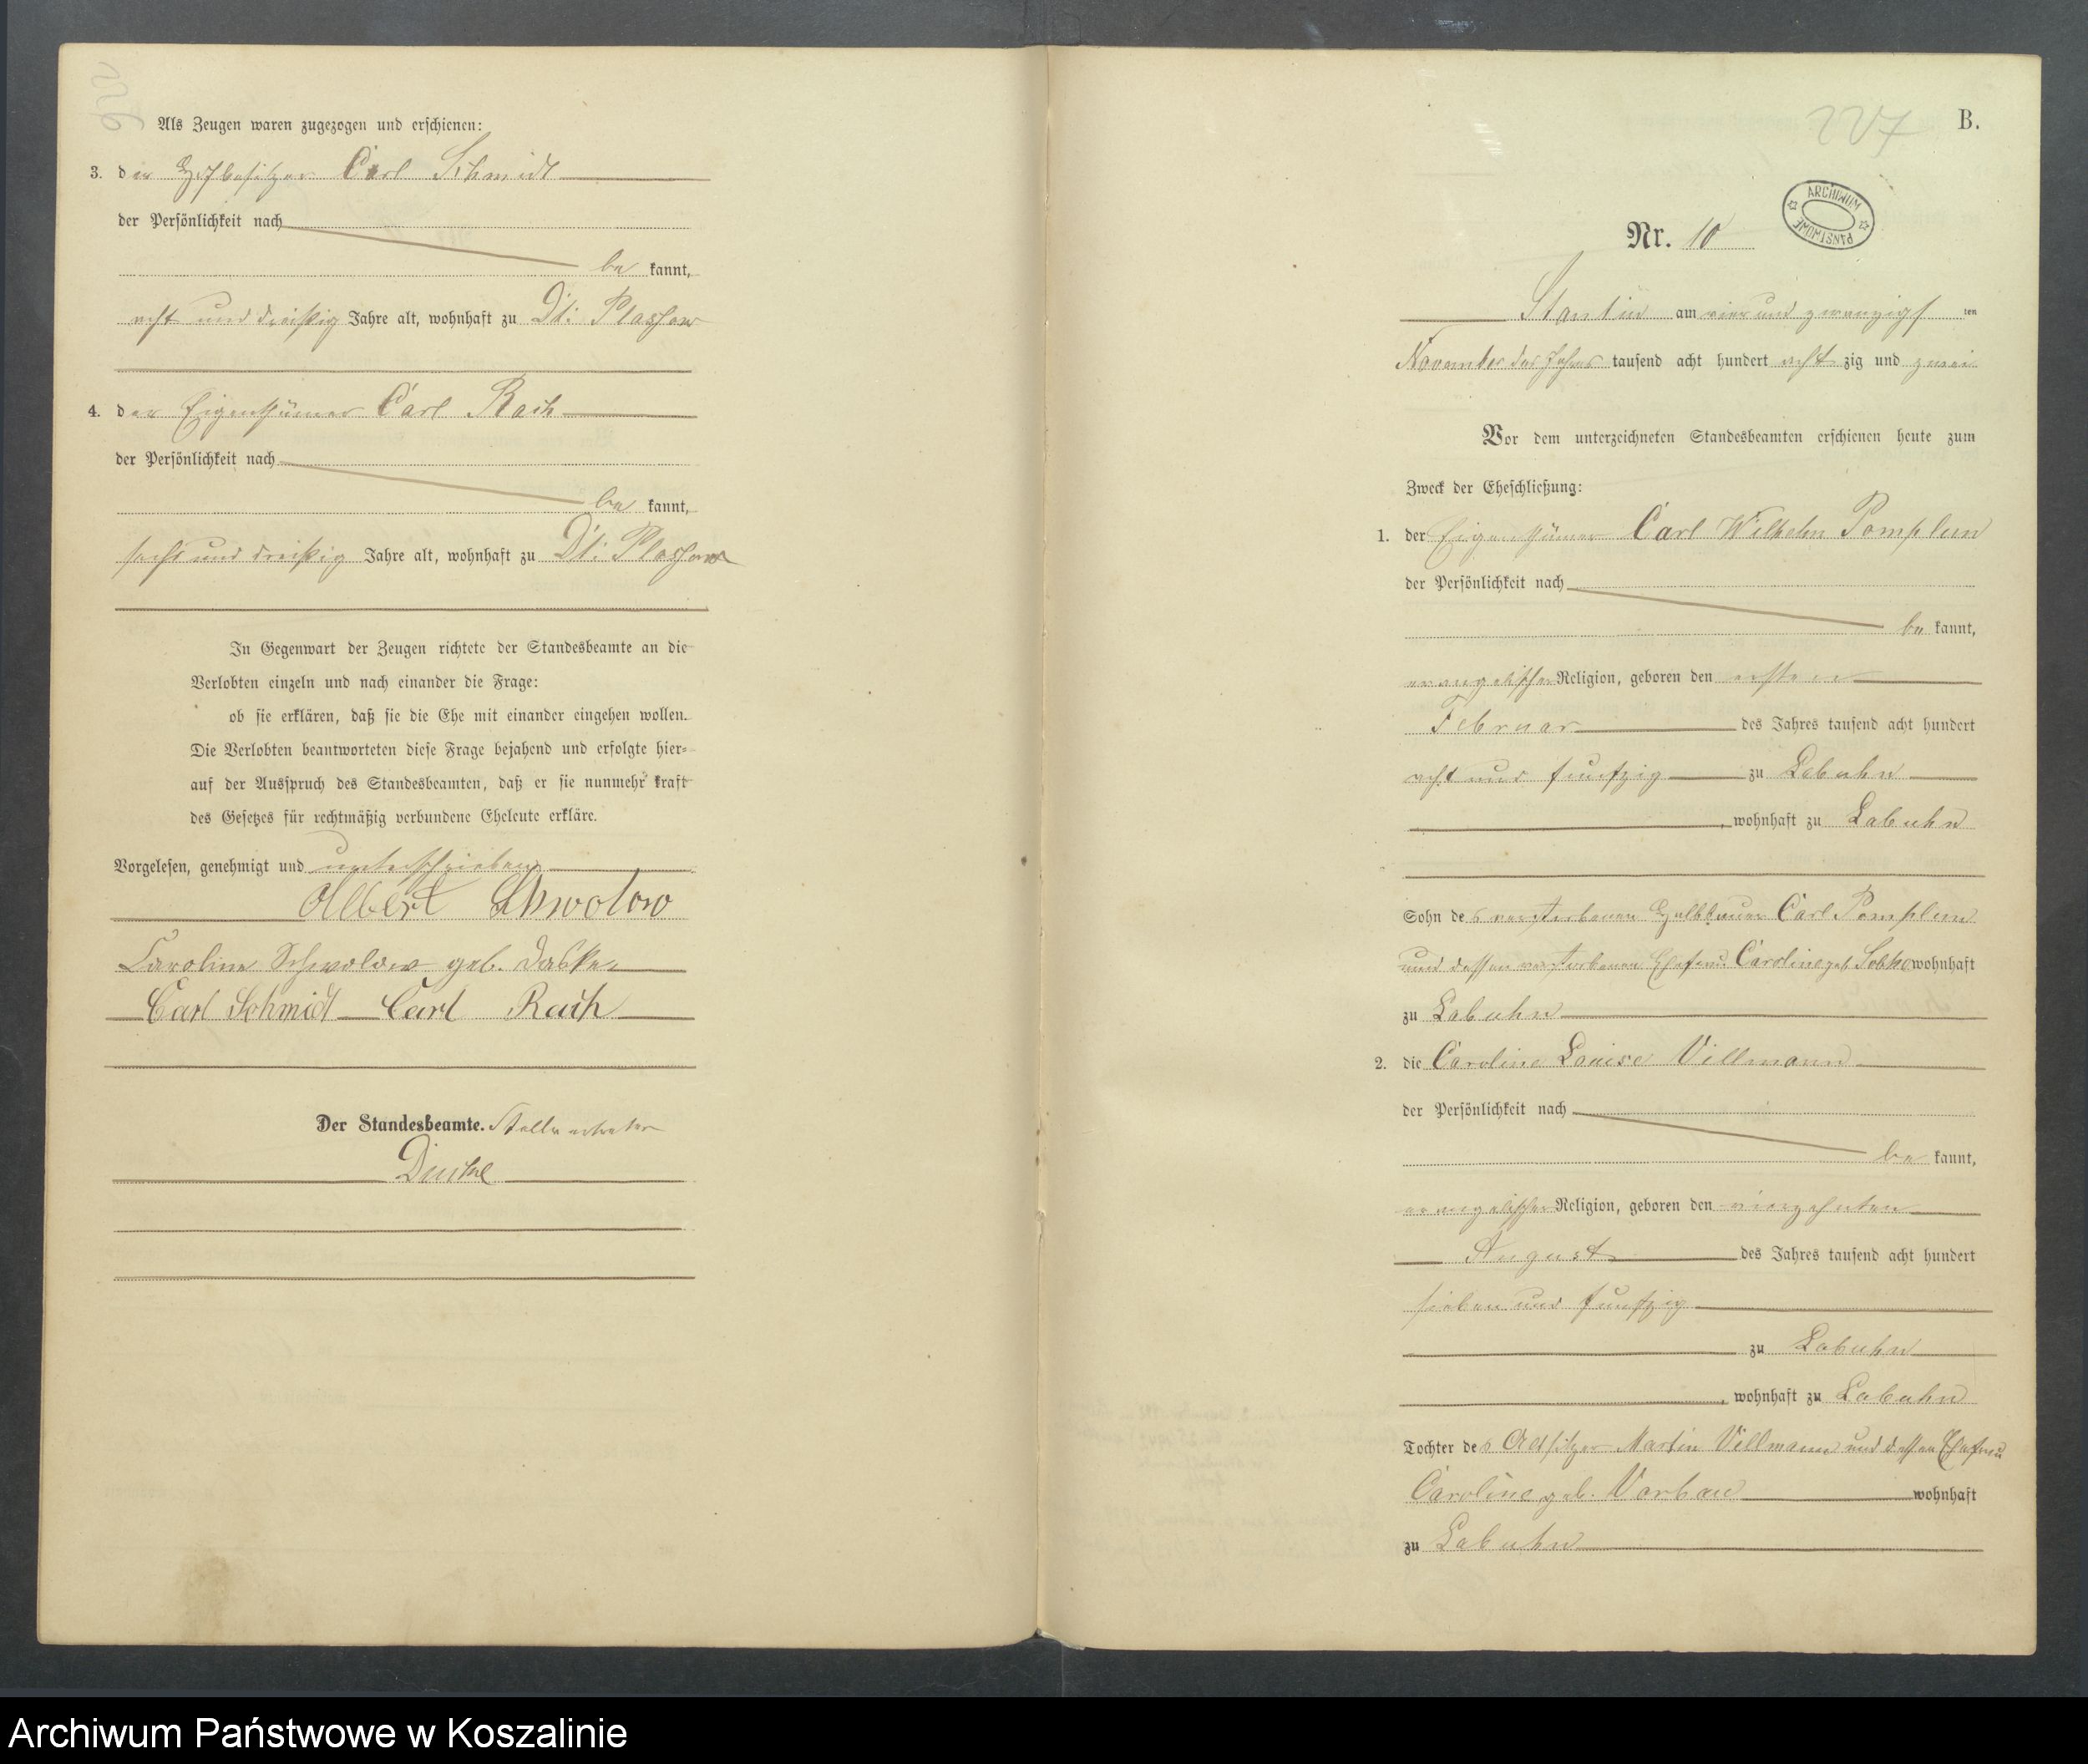 Als Zeugen waren zugezogen und erschienen:
3. der Hofbesitzer Carl Schmidt
der Persönlichkeit nach
be kannt,
acht und dreißig Jahre alt, wohnhaft zu Dt: Plassow
4. der Eigenthümer Carl Rach
der Persönlichkeit nach
be kannt,
sechs und dreißig Jahre alt, wohnhaft zu Dt: Plassow
In Gegenwart der Zeugen richtete der Standesbeamte an die
Verlobten einzeln und nach einander die Frage:
ob sie erklären, daß sie die Ehe mit einander eingehen wollen.
Die Verlobten beantworteten diese Frage bejahend und erfolgte hier-
auf der Ausspruch des Standesbeamten, daß er sie nunmehr kraft
des Gesetzes für rechtmäßig verbundene Eheleute erkläre.
Vorgelesen, genehmigt und unterschrieben
Albert Schwolow
Caroline Schwolow geb.
Carl Schmidt Carl Rach
Der Standesbeamte. Stellvertreter
227 B.
ARCHIWUM PAŃSTWOWE
Nr. 10
Stantin am vier und zwanzigs ten
November des Jahres tausend acht hundert acht zig und zwei
Vor dem unterzeichneten Standesbeamten erschienen heute zum
Zweck der Eheschließung:
1. der Eigenthümer Carl Wilhelm Pomplun
der Persönlichkeit nach
be kannt,
evangelischer Religion, geboren den ersten
Februar des Jahres tausend acht hundert
acht und funfzig zu Labuhn
, wohnhaft zu Labuhn
Sohn des verstorbenen Halbbauer Carl Pomplun
und dessen verstorbenen Ehefrau Caroline geb. wohnhaft
zu Labuhn
2. die Caroline Louise Villmann
der Persönlichkeit nach
be kannt,
evangelischer Religion, geboren den vierzehnten
August des Jahres tausend acht hundert
sieben und funfzig
zu Labuhn
, wohnhaft zu Labuhn
Tochter des Altsitzer Martin Villmann und dessen Ehefrau
Caroline geb. Varbau wohnhaft
zu Labuhn
Archiwum Państwowe w Koszalinie